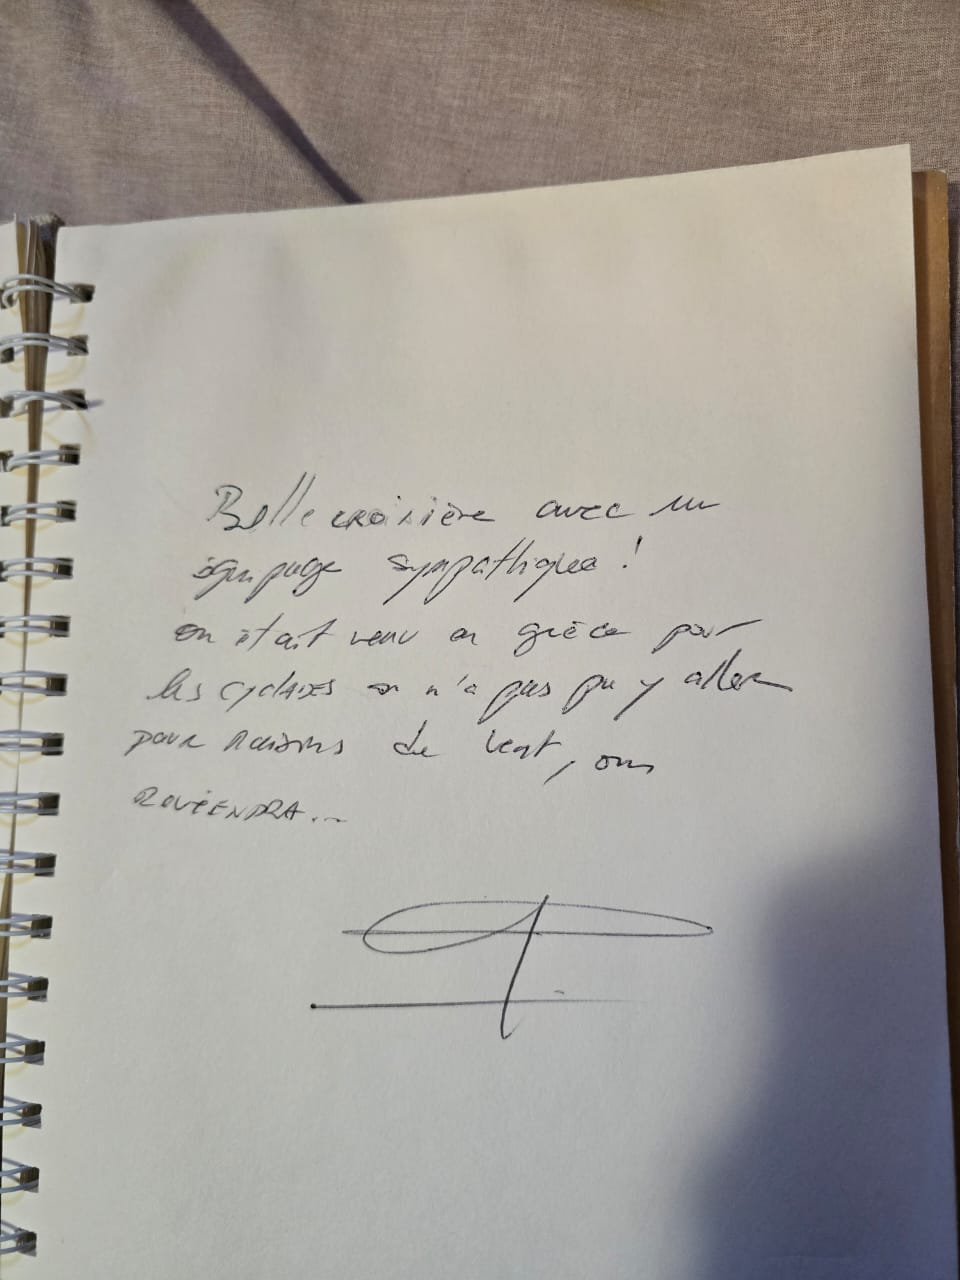 Belle croisière avec un
équipage sympathique !
on était venu en grèce pour
les cyclades on n'a pas pu y aller
pour raisons de vent, on
REVIENDRA...